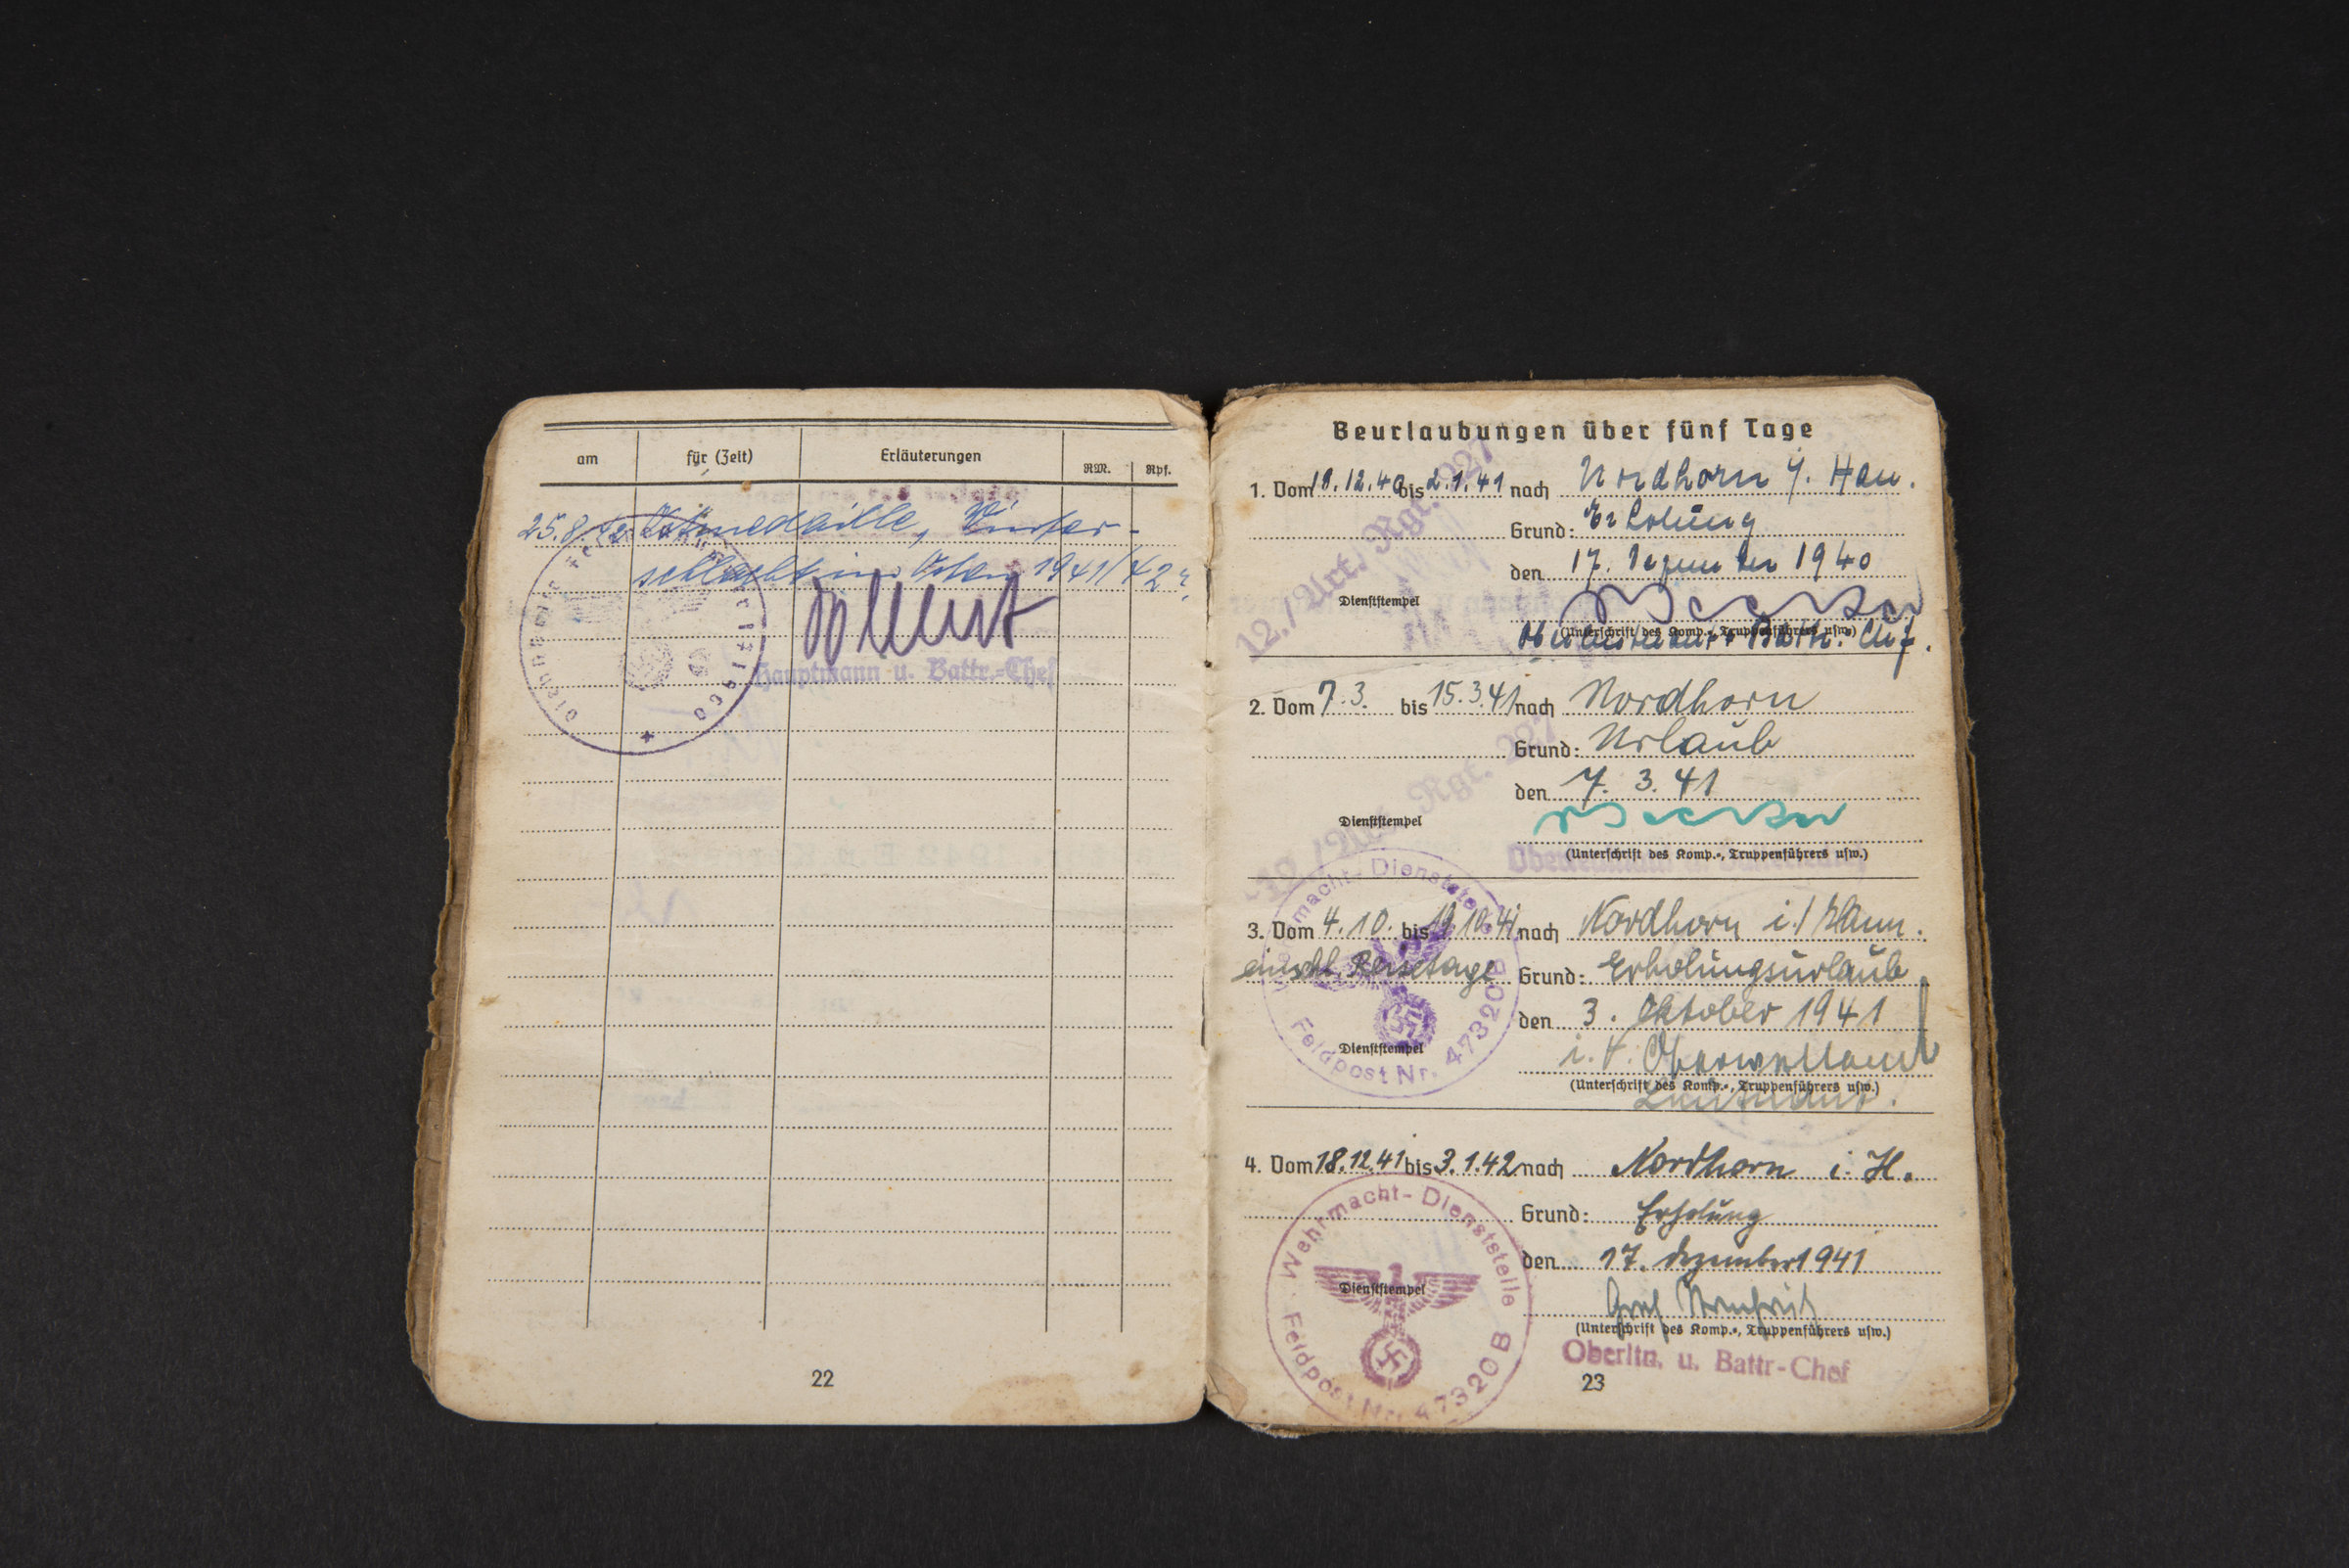 am für (Zeit) Erläuterungen RM. Rpf.
25.8.42 Ostmedaille, Winter-
schlacht im Osten 1941/42"
Hauptmann u. Battr.-Chef
22
Beurlaubungen über fünf Tage
12./Art. Rgt. 227
1. Vom 18.12.40 bis 2.1.41 nach Nordhorn i. Han.
Grund: Erholung
den 17. Dezember 1940
Dienststempel
(Unterschrift des Komp.-, Truppenführers usw.)
Oberleutnant u. Battr. Chef.
2. Vom 7.3. bis 15.3.41 nach Nordhorn
Grund: Urlaub
den 7.3.41
Art. Rgt. 227
Dienststempel
(Unterschrift des Komp.-, Truppenführers usw.)
3. Vom 4.10. bis 19.10.41 nach Nordhorn i./Hann.
einschl. Reisetage Grund: Erholungsurlaub
den 3. Oktober 1941
Wehrmacht-Dienststelle
Feldpost Nr. 47320B
Dienststempel
i.V.
(Unterschrift des Komp.-, Truppenführers usw.)
Leutnant.
4. Vom 18.12.41 bis 3.1.42 nach Nordhorn i. H.
Grund: Erholung
den 17. Dezember 1941
Wehrmacht-Dienststelle
Feldpost Nr. 47320B
Dienststempel
(Unterschrift des Komp.-, Truppenführers usw.)
Oberltn. u. Battr-Chef
23